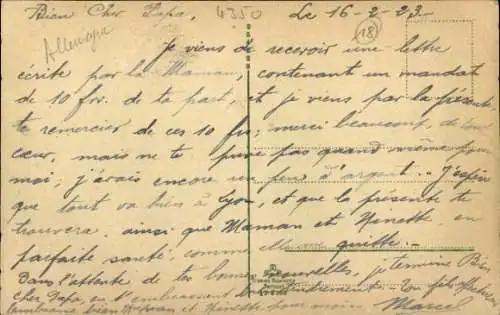 Bien Cher Papa, 4350 Le 16-2-23-
18
Allemagne
Je viens de recevoir une lettre
écrite par la Maman, contenant un mandat
de 10 frs. de ta part, et je viens par la présente
te remercier de ces 10 frs; merci beaucoup, de tout
cœur, mais ne te prive pas quand même pour
moi; j'avais encore un peu d'argent.. J'espère
que tout va bien à Lyon, et que la présente te
trouvera, ainsi que Maman et Ninette, en
parfaite santé, comme quitte.-
Dans l'attente de tes bonnes nouvelles, je termine Bien
cher Papa, en t'embrassant Ton fils affectueux
embrasse bien Maman et Ninette pour moi, Marcel